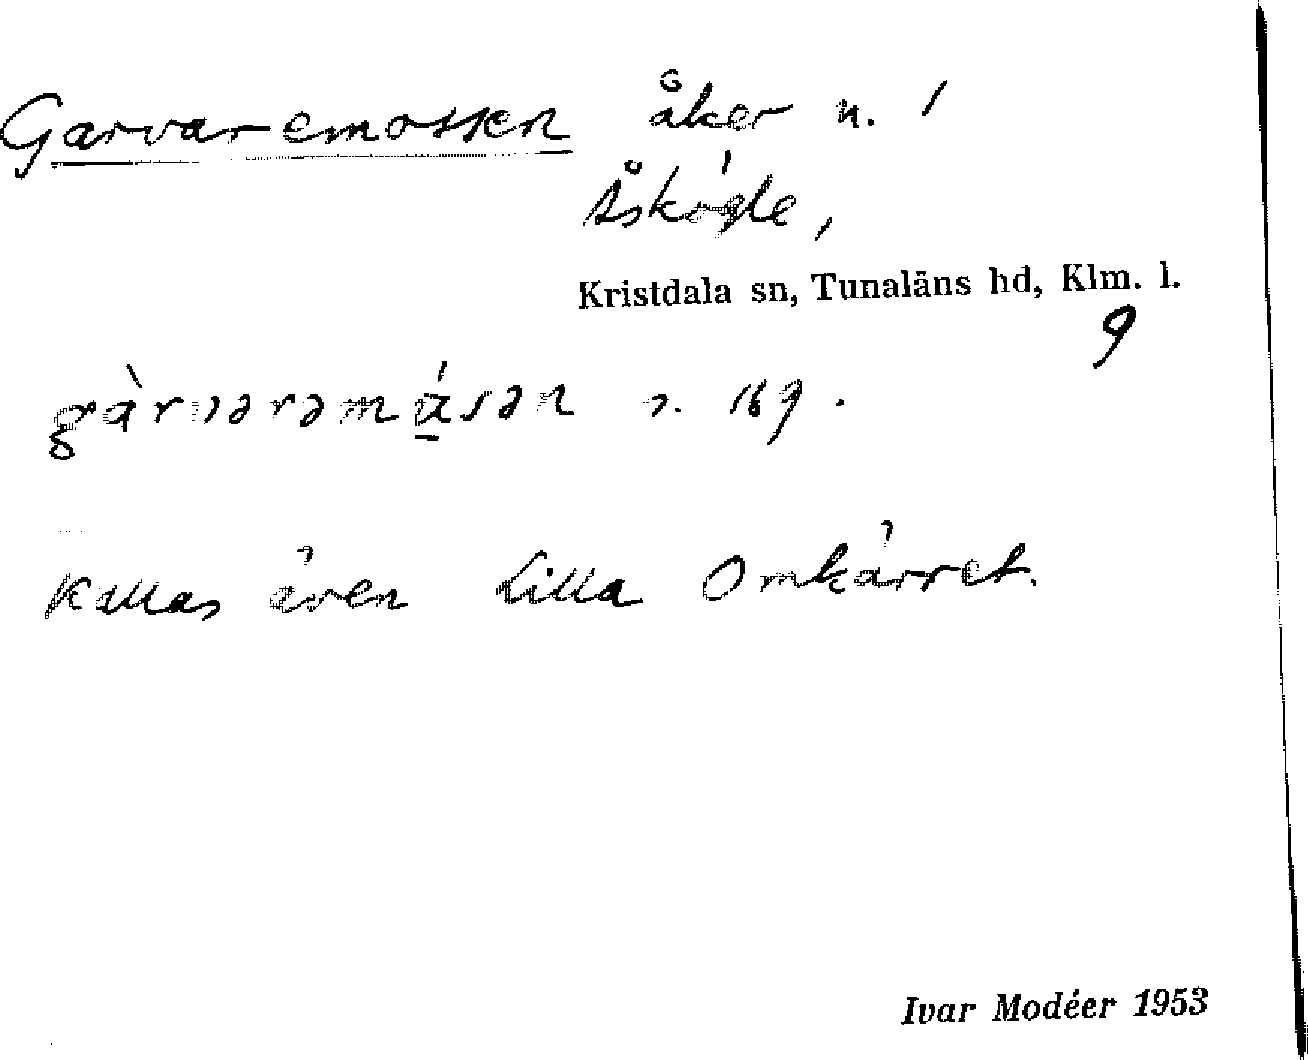 Garvaremossen åker n. 1
Åsködle,
Kristdala sn, Tunaläns hd, Klm. l.
9
169.
Kallas även Lilla Omkärret.
Ivar Modéer 1953